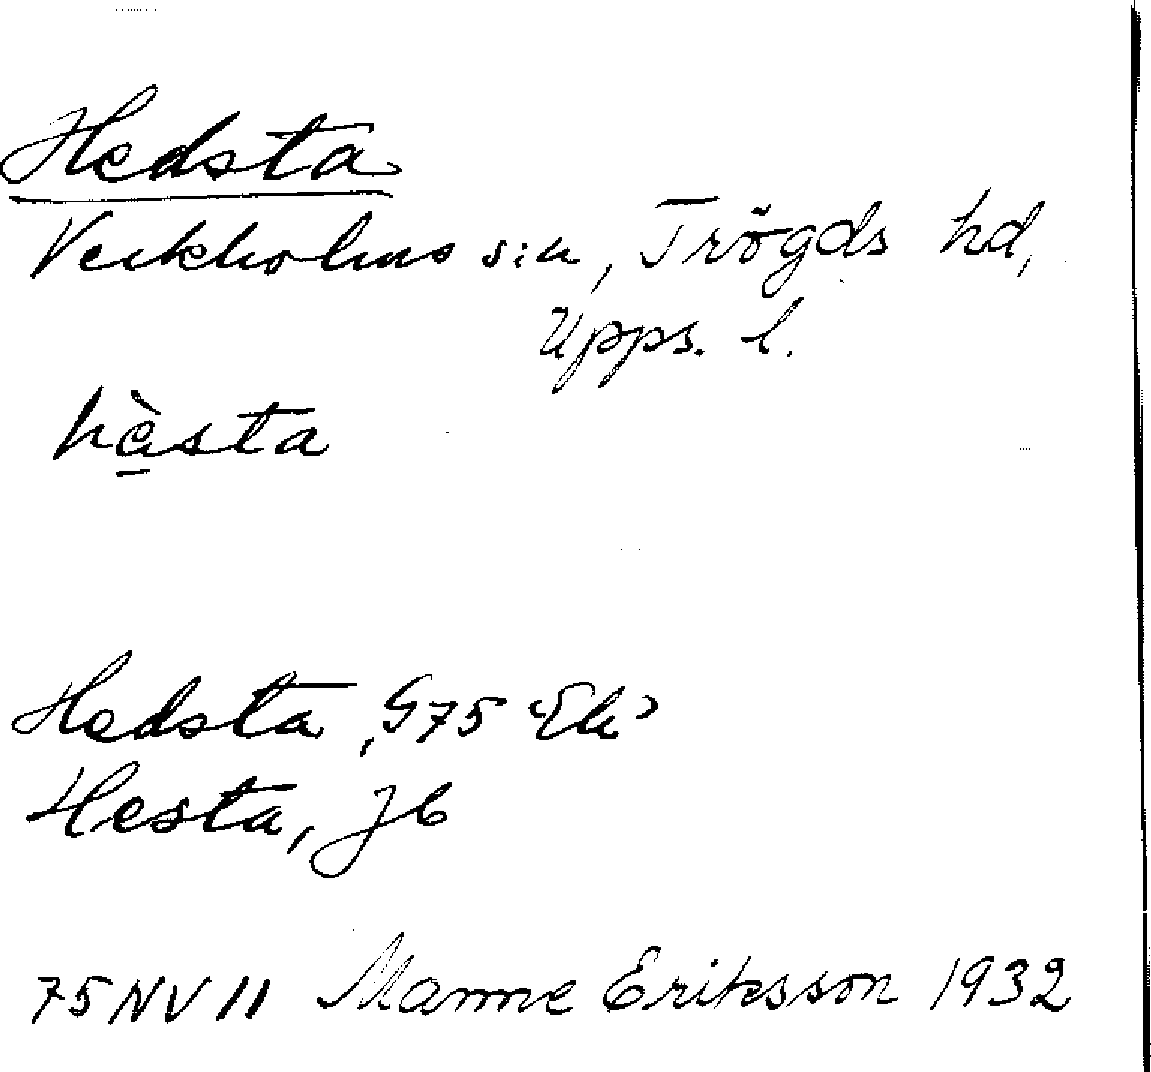 Hedsta
Veckholms s:n, Trögds hd,
Upps. l.
hàsta
Hedsta, G75 "Ek"
Hesta, Jb
75 NV 11 Manne Eriksson 1932